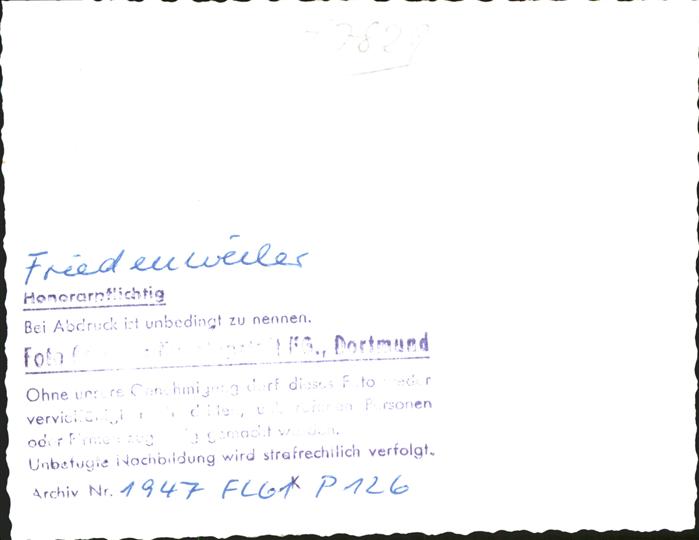 7829
Friedenweiler
Honorarpflichtig
Bei Abdruck ist unbedingt zu nennen.
Foto KG., Dortmund
Ohne unsere Genehmigung darf dieses Foto weder
vervielfältigt Personen
oder Firmen zugängig gemacht werden.
Unbefugte Nachbildung wird strafrechtlich verfolgt.
Archiv Nr. 1947 FLG1x P 126